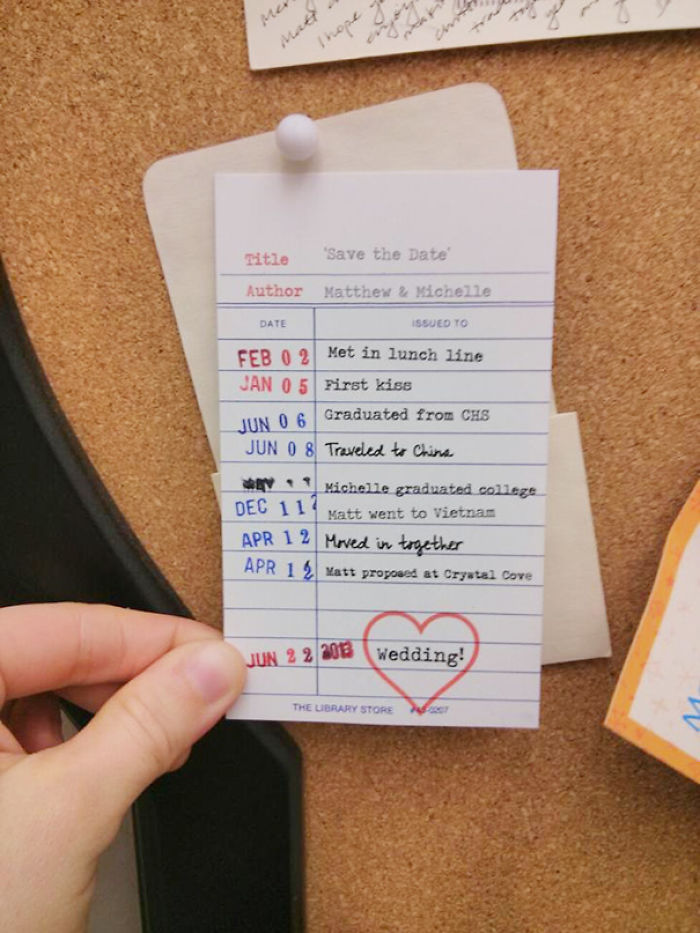 Matt
I hope you
enjoy
Title 'Save the Date'
Author Matthew & Michelle
DATE ISSUED TO
FEB 0 2 Met in lunch line
JAN 0 5 First kiss
JUN 0 6 Graduated from CHS
JUN 0 8 Traveled to China
MAY Michelle graduated college
DEC 1 1 Matt went to Vietnam
APR 1 2 Moved in together
APR 1 2 Matt proposed at Crystal Cove
JUN 2 2 2013 Wedding!
THE LIBRARY STORE #43-0207